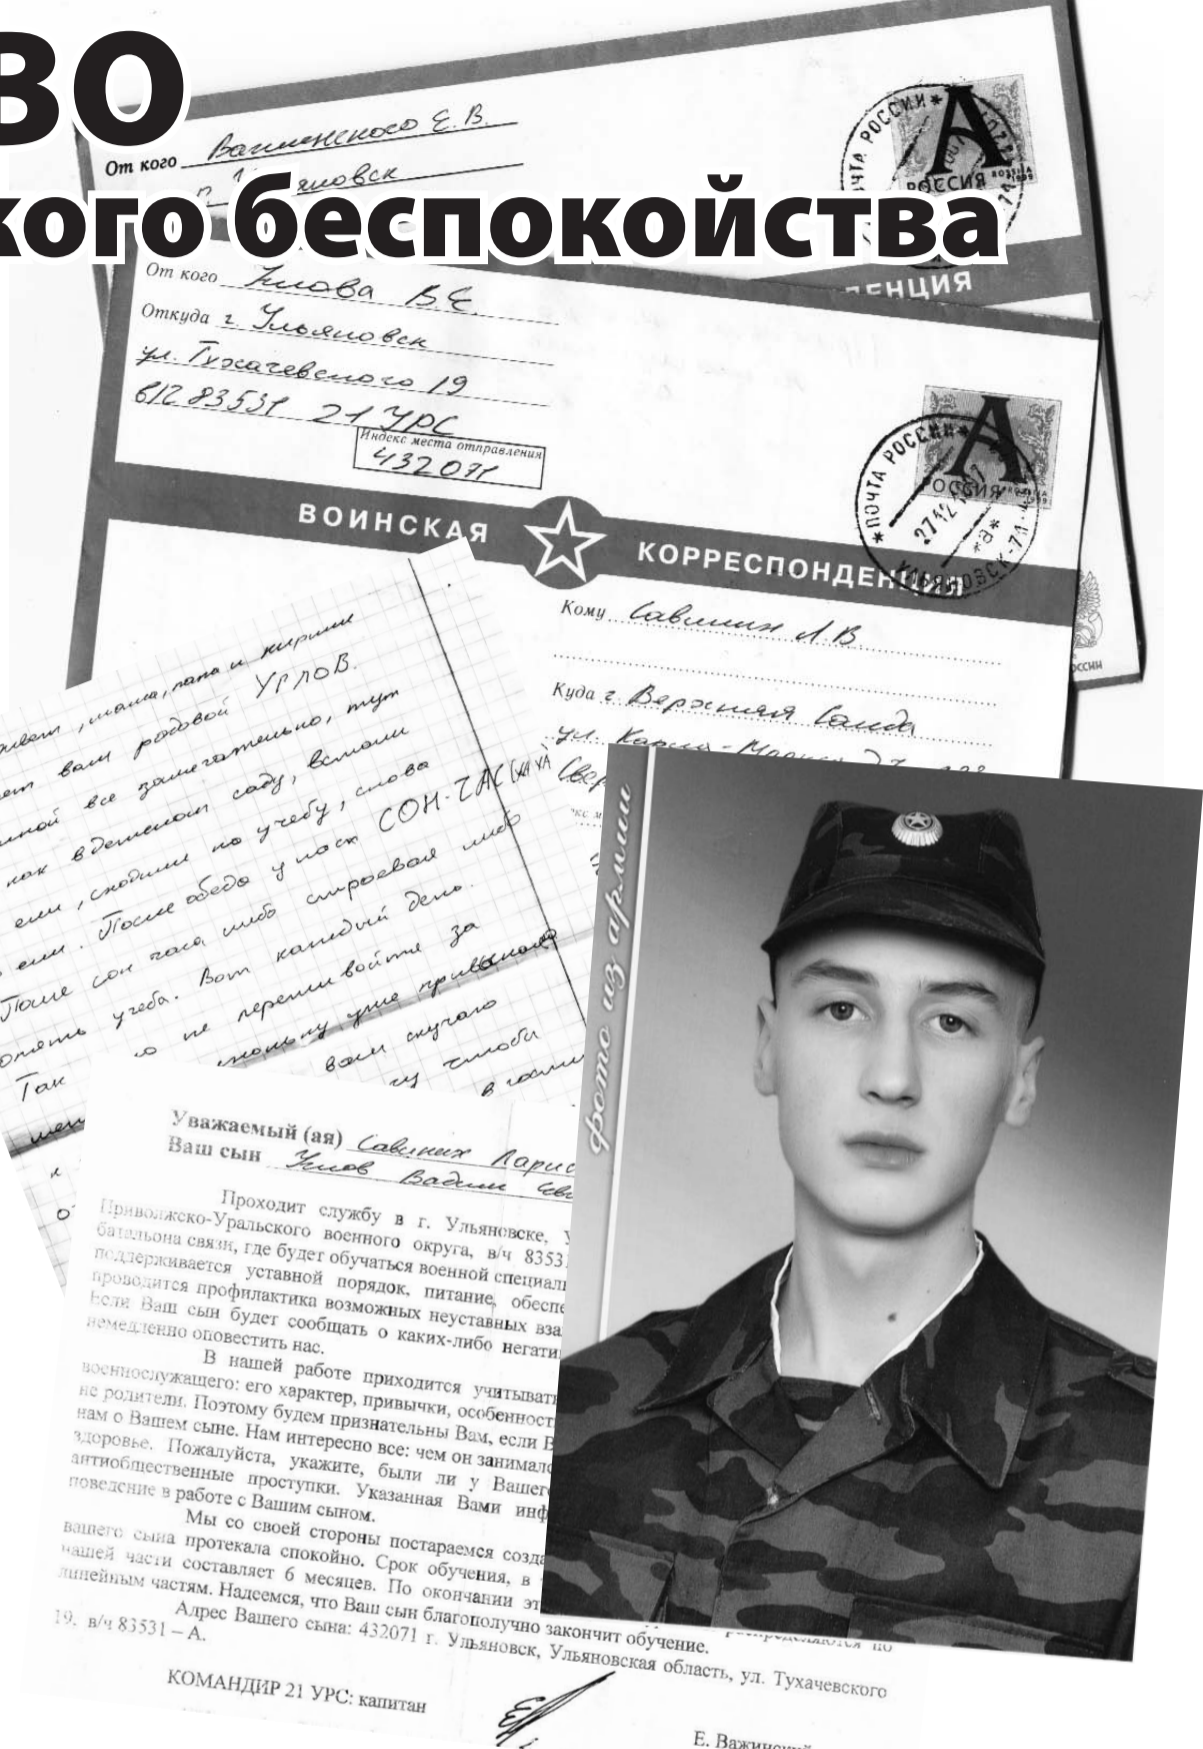 ВО
кого беспокойства
От кого Важинского Е.В.
яновск
ПОЧТА РОССИИ
А
РОССИЯ
ДЕНЦИЯ
От кого Углова В.Е.
Откуда г. Ульяновск
ул. Тухачевского 19
в/ч 83531 21 УРС
Индекс места отправления
432071
ПОЧТА РОССИИ
27 12
УЛЬЯНОВСК-71
А
РОССИЯ
ВОИНСКАЯ КОРРЕСПОНДЕНЦИЯ
Кому Савиних Л.В.
Куда г. Верхняя Салда
ул. Карла-Маркса
Свер
ривет, мама, папа и
ет вам рядовой УГЛОВ.
мной все замечательно, тут
как в детском саду, встали
ели, сходили на учебу, снова
ели. После обеда у нас СОН-ЧАС (ХАХА)
После сон часа либо строевая либо
опять учеба. Вот каждый день.
Так не переживайте за
уже
вам скучаю
чтобы
в
фото из армии
Уважаемый (ая) Савиних Ларис
Ваш сын Углов Вадим Евг
Проходит службу в г. Ульяновске, у
Приволжско-Уральского военного округа, в/ч 8353
батальона связи, где будет обучаться военной специал
поддерживается уставной порядок, питание, обеспе
проводится профилактика возможных неуставных вза
Если Ваш сын будет сообщать о каких-либо негати
немедленно оповестить нас.
В нашей работе приходится учитыват
военнослужащего: его характер, привычки, особенност
не родители. Поэтому будем признательны Вам, если В
нам о Вашем сыне. Нам интересно все: чем он занимал
здоровье. Пожалуйста, укажите, были ли у Вашег
антиобщественные проступки. Указанная Вами инф
поведение в работе с Вашим сыном.
Мы со своей стороны постараемся созда
вашего сына протекала спокойно. Срок обучения, в
нашей части составляет 6 месяцев. По окончании эт
распределяются по
линейным частям. Надеемся, что Ваш сын благополучно закончит обучение.
Адрес Вашего сына: 432071 г. Ульяновск, Ульяновская область, ул. Тухачевского
19. в/ч 83531 – А.
КОМАНДИР 21 УРС: капитан
Е. Важинский